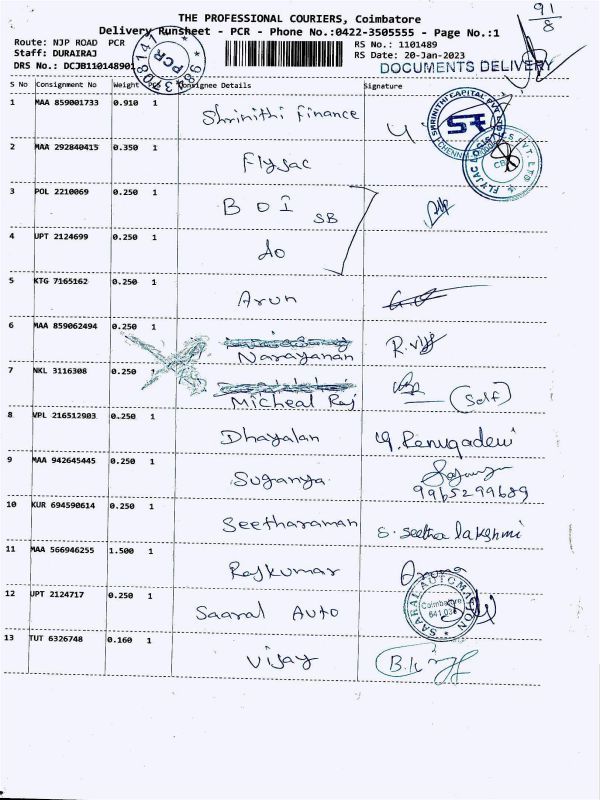 91/8
THE PROFESSIONAL COURIERS, Coimbatore
Delivery Runsheet - PCR - Phone No.:0422-3505555 - Page No.:1
Route: NJP ROAD PCR
RS No.: 1101489
Staff: DURAIRAJ
RS Date: 20-Jan-2023
DRS No.: DCJB110148901
DOCUMENTS DELIVERY
PCR
S No Consignment No Weight Consignee Details Signature
1 MAA 859001733 0.910 1 Shrinithi Finance
SHRINITHI CAPITAL PVT
CHENNAI
2 MAA 292840415 0.350 1 Flyjac
FLYJAC LOGISTICS PVT. LTD.
3 POL 2210069 0.250 1 BOI SB
4 UPT 2124699 0.250 1 do
5 KTG 7165162 0.250 1 Arun
6 MAA 859062494 0.250 1 Narayanan R.Vijy
7 NKL 3116308 0.250 1 Micheal Raj (Self)
8 VPL 216512903 0.250 1 Dhayalan G.Renugadevi
9 MAA 942645445 0.250 1 Suganya
9965299689
10 KUR 694590614 0.250 1 Seetharaman S. Seetha lakshmi
11 MAA 566946255 1.500 1 Rajkumar
12 UPT 2124717 0.250 1 Saaral Auto
SAARAL AUTOMATION
Coimbatore
13 TUT 6326748 0.160 1 Vijay